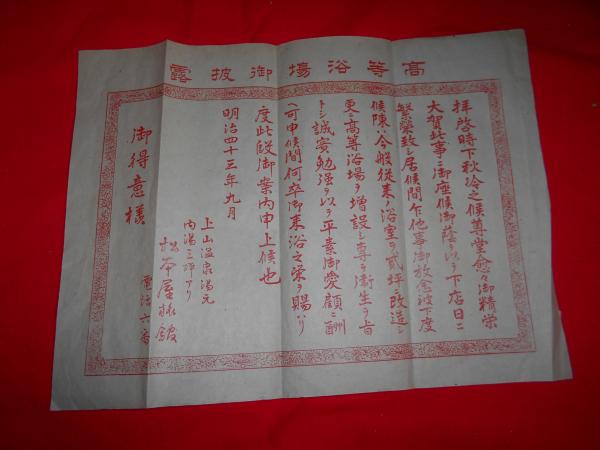 高等浴場御披露
拝啓時下秋冷之候尊堂愈々御精栄
大賀此事ニ御座候御蔭ヲ以テ下店日ニ
繁栄致シ居候間乍他事御放念被下度
候陳ハ今般従来ノ浴室ヲ貳坪ニ改造シ
更ニ高等浴場ヲ増設シ専ラ衛生ヲ旨
トシ誠実勉強ヲ以テ平素御愛顧ニ酬
ヘ可申候間何卒御来浴之栄ヲ賜ハリ
度此段御案内申上候也
明治四十三年九月
上山温泉湯元
内湯三坪アリ
松本屋旅館
電話六番
御得意様